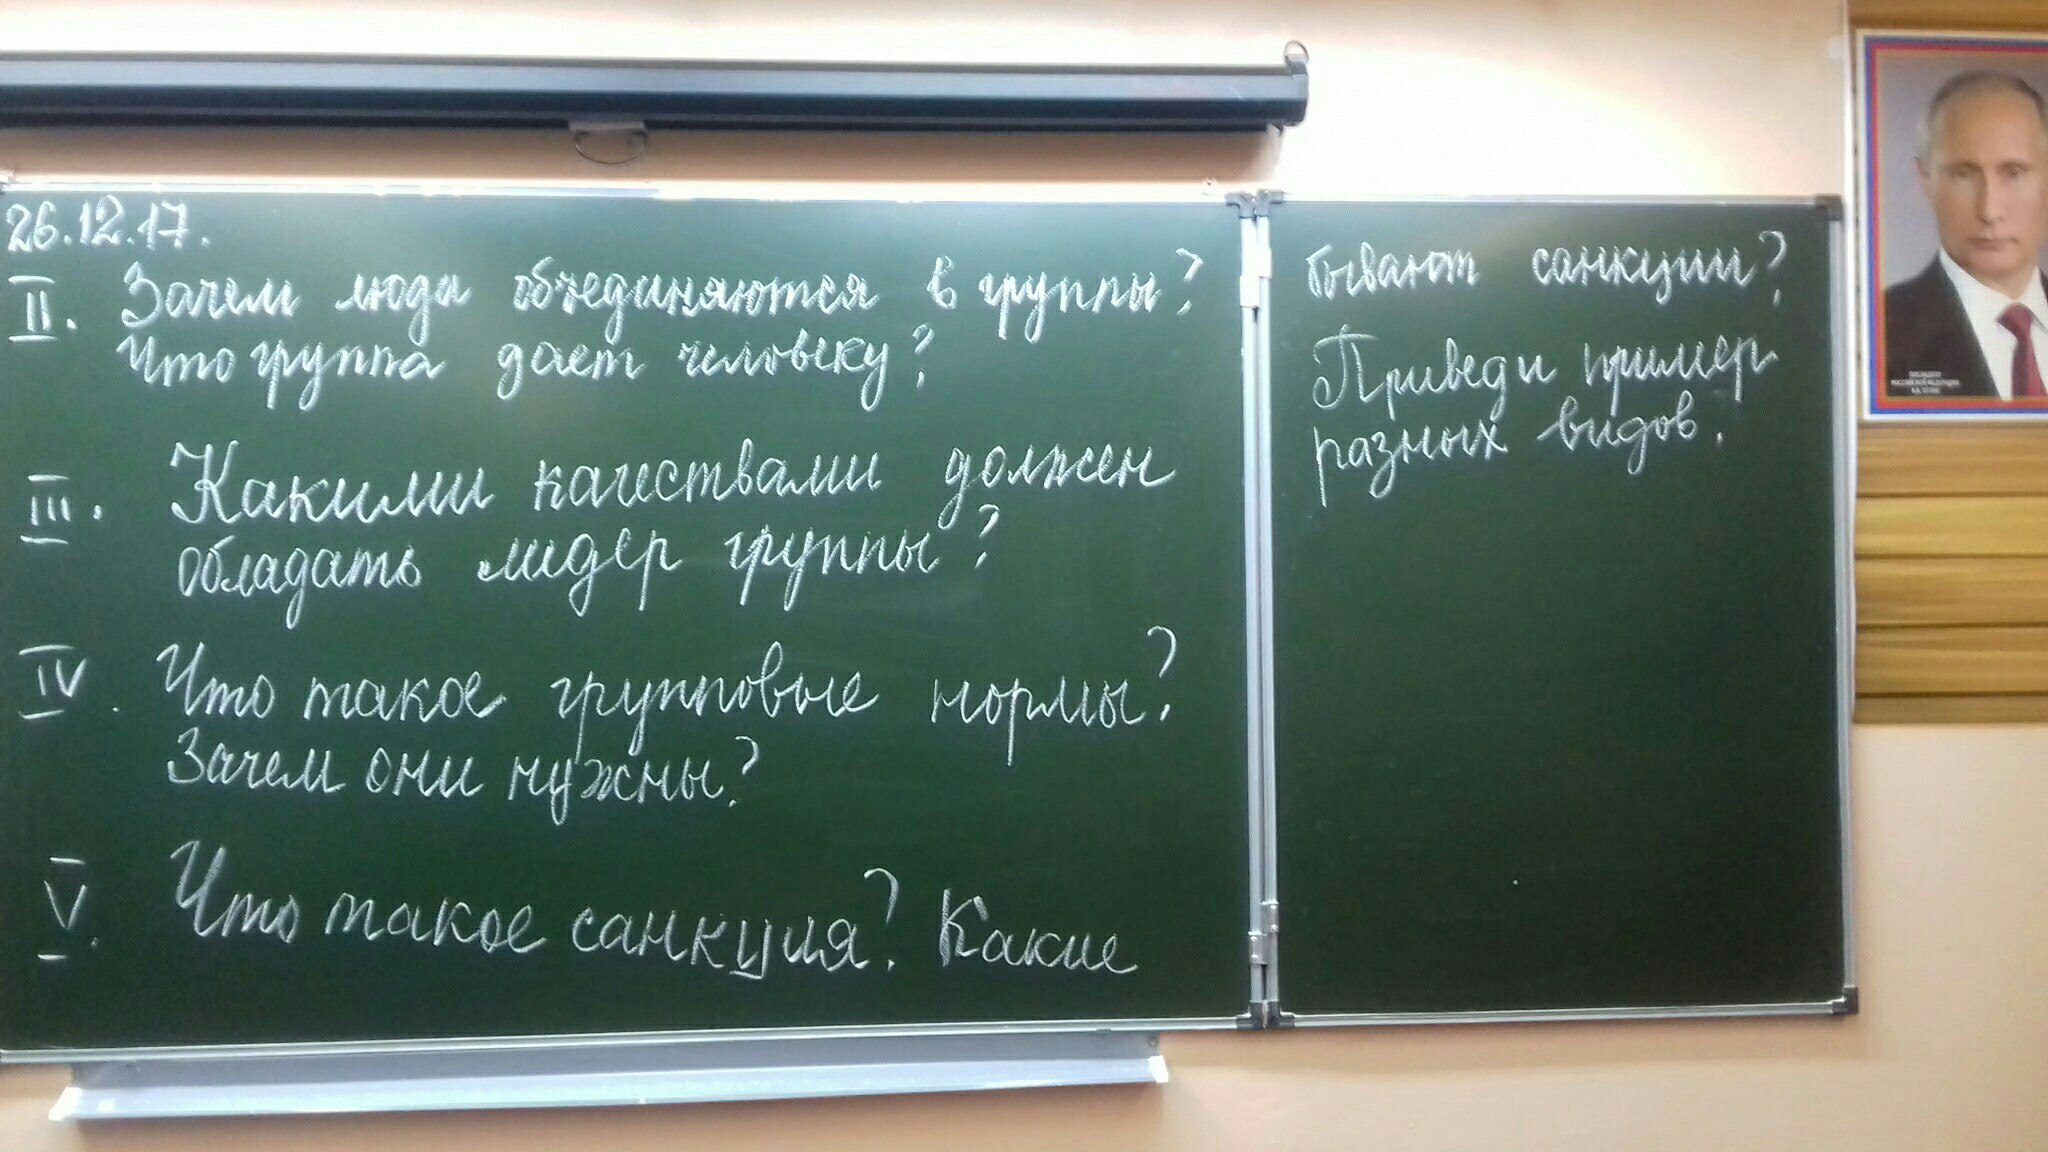 26.12.17.
II. Зачем люди объединяются в группы?
Что группа дает человеку?
III. Какими качествами должен
обладать лидер группы?
IV. Что такое групповые нормы?
Зачем они нужны?
V. Что такое санкция? Какие
бывают санкции?
Приведи пример
разных видов.
ПРЕЗИДЕНТ
РОССИЙСКОЙ ФЕДЕРАЦИИ
В.В. ПУТИН